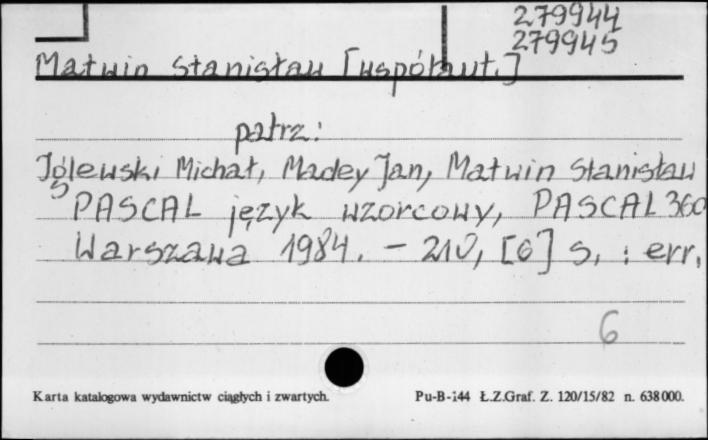 279944
279945
Matwin Stanisław [współaut.]
patrz:
Iglewski Michał, Madey Jan, Matwin Stanisław
PASCAL język wzorcowy, PASCAL 360
Warszawa 1984. - 210, [6] s. : err.
6
Karta katalogowa wydawnictw ciągłych i zwartych. Pu-B-144 Ł.Z.Graf. Z. 120/15/82 n. 638000.